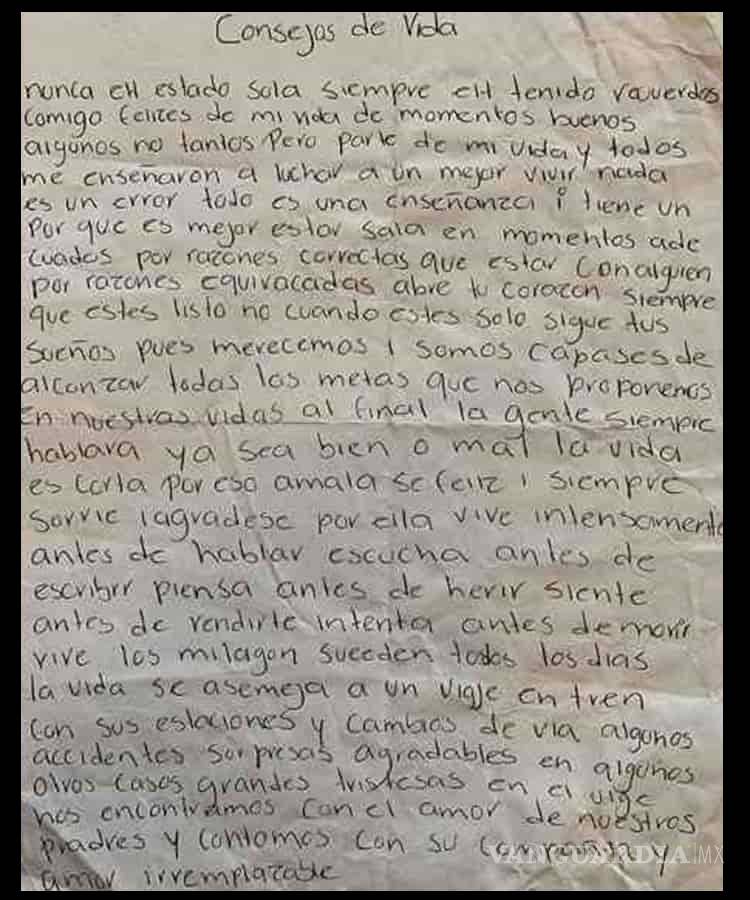 Consejos de Vida
nunca eH estado sola siempre eH tenido recuerdos
comigo felizes de mi vida de momentos buenos
algunos no tantos Pero parte de mi vida y todos
me enseñaron a luchar a un mejor vivir nada
es un error todo es una enseñanza i tiene un
Por que es mejor estar sola en momentos ade
cuados por razones correctas que estar con alguien
por razones equivacadas abre tu corazon siempre
que estes listo no cuando estes solo sigue tus
sueños pues merecemos i somos capases de
alcanzar todas las metas que nos proponemos
En nuestras vidas al final la gente siempre
hablara ya sea bien o mal la vida
es corta por eso amala se feliz i siempre
sorrie iagradese por ella vive intensamente
antes de hablar escucha antes de
escribir piensa antes de herir siente
antes de rendirte intenta antes de morir
vive los milagon suceden todos los dias
la vida se asemeja a un viaje en tren
con sus estaciones y cambios de via algunos
accidentes sorpresas agradables en algunos
otros casos grandes tristesas en el vige
nos encontramos con el amor de nuestros
pradres y contomos con su compañia y
amor irremplazable
VANGUARDIA MX